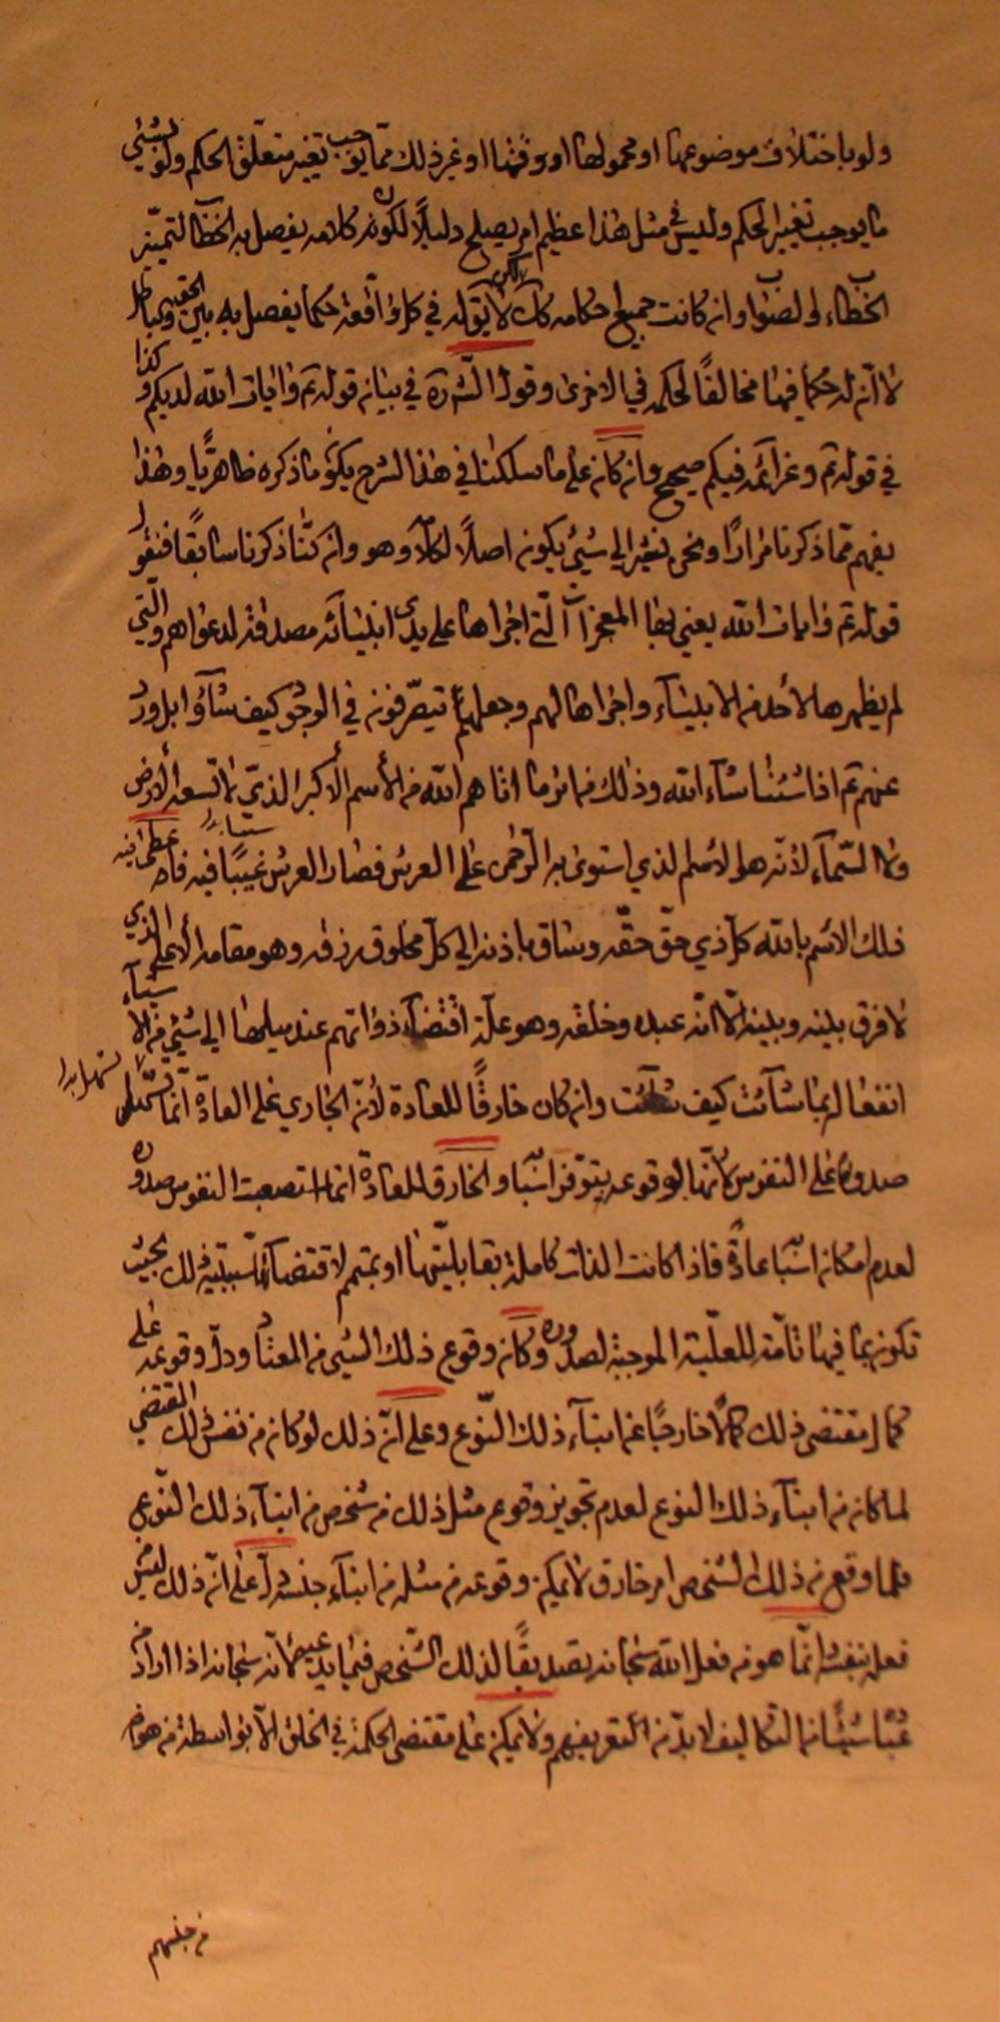 ولو باختلاف موضوعها او محمولها او وقتها او غير ذلك مما يوجب تغيير متعلق الحكم ولو بشئ
ما يوجب تغيير الحكم وليس في مثل هذا عظيم امر يصلح دليلاً لكون كلامه يفصل به الخطا لتميز
الخطاء والصواب وان كانت جميع احكامه كك لا يقوله في كل واقعة حكما يفصل به بين الحق والباطل
لا ان له حكما فيها مخالفًا لحكمه في الاخرى وقول الش ره في بيان قوله تع وايات الله لديكم وكذا
في قوله تع وعزائمه فيكم صحيح وان كان على ما سلكنا في هذا الشرح يكون ما ذكره ظاهريًا وهذا
يفهم مما ذكرنا مرارًا ونحن نشير الى شئ يكون اصلاً لكلامه وان كنا ذكرنا سابقًا فنقول
قوله تع وايات الله يعني بها المعجزات التي اجراها على يدي انبيائه مصدقة لدعواهم والتي
لم يظهرها لأحد من الانبياء واجراها لهم وجعلهم يتصرفون في الوجود كيف شاؤا بل ورد
عنهم تع اذا شئنا شاء الله وذلك من اثر ما اتاهم الله من الأسم الأكبر الذي لا تسعه الأرض
ولا السماء لأنه هو الاسم الذي استوى به الرحمن على العرش فصار العرش غيبًا فيه فاعطى
ذلك الاسم بالله كل ذي حق حقه وساق باذنه الى كل مخلوق رزقه وهو مقامه الأعلى الذي
لا فرق بينه وبينه الا انه عبده وخلقه وهو علة اقتضاء ذواتهم عند ميلها الى شئ من الاشياء
انفعاله بما شائت كيف شائت وان كان خارقًا للعادة لأن الجاري على العادة انما تسهل
صدوره على النفوس لانها لوقوعه بتوفر اسبا والخارق للعادة انما استصعبت النفوس صدوره
لعدم امكان اسبا عادة فاذا كانت الذات كاملة بقابليتها او بمتمم لاقتضاء لسببية ذلك بحيث
تكون بما فيها تامة للعلية الموجبة لصدوره وكان وقوع ذلك الشئ من المعتاد ودل وقوعه على
كمال مقتضى ذلك كمالا خارجًا عن ابناء ذلك النوع وعلى ان ذلك لو كان من نفس ذلك المقتضي
لما كان من ابناء ذلك النوع لعدم تجويز وقوع مثل ذلك من شخص من ابناء ذلك النوع
فلما وقع من ذلك الشخص امر خارق لا يمكن وقوعه من مثله من ابناء جنسه دل على ان ذلك ليس من
فعله بنفسه انما هو من فعل الله سبحانه تصديقًا لذلك الشخص فيما يدعيه لانه سبحانه اذا اراد من
عبا شيئًا من التكاليف لا بد من التعريفهم ولا يمكن على مقتضى الحكمة في الخلق الا بواسطة من هو من
من جنسهم